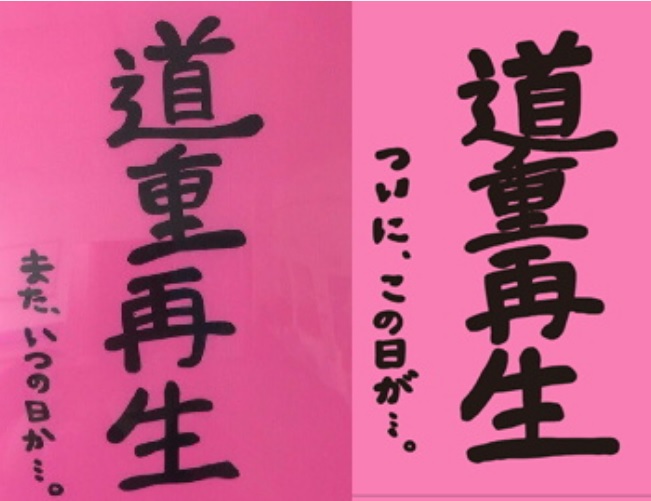 道重再生
また、いつの日か…。
道重再生
ついに、この日が…。